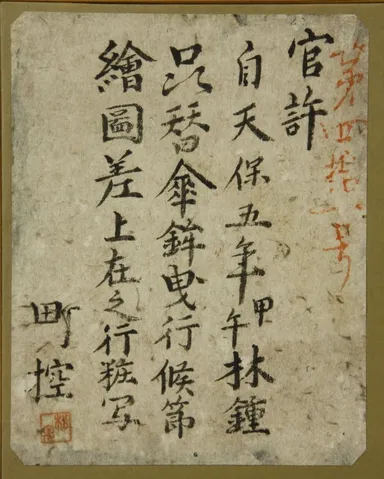 第四拾一号
官許
自天保五年甲午林鍾
替傘鉾曳行候節
繪圖差上在之行粧写
町控